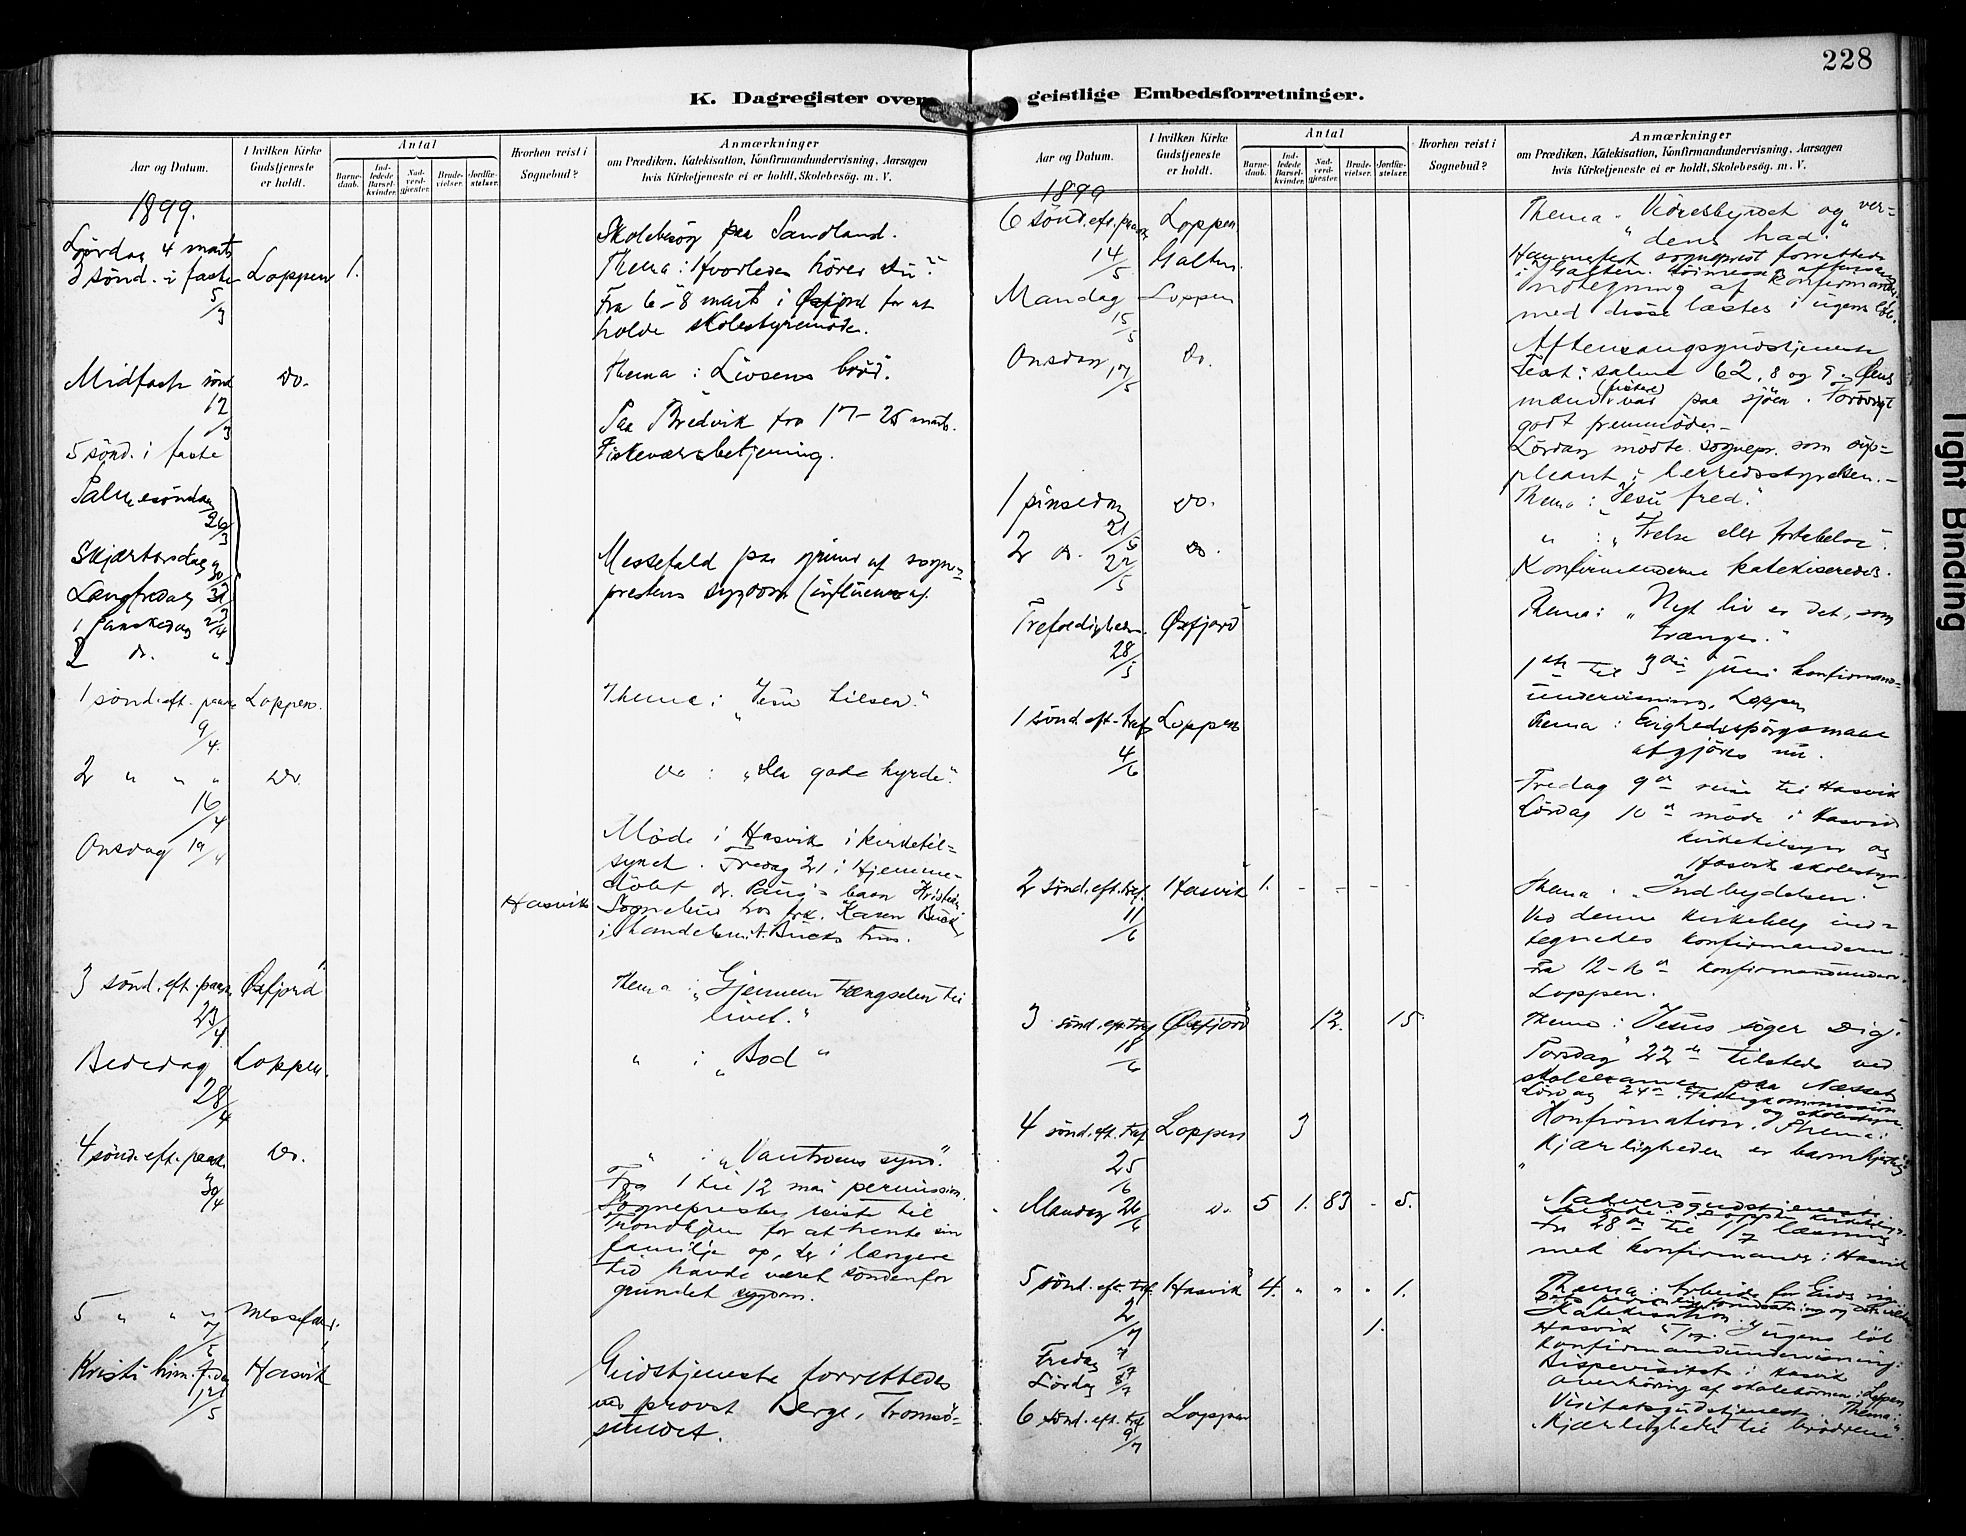 228
K. Dagregister over geistlige Embedsforretninger.
Aar og Datum.
I hvilken Kirke Gudstjeneste er holdt.
Antal
Barnedaab.
Indledede Barselkvinder.
Nadverdgjester.
Brudevielser.
Jordfæstelser.
Hvorhen reist i Sognebud?
Anmærkninger
om Prædiken, Katekisation, Konfirmandundervisning, Aarsagen
hvis Kirketjeneste ei er holdt, Skolebesög. m. V.
1899.
Lördag 4 marts
Skolebesög paa Sandland.
3 sönd. i faste 5/3 Loppen 1.
Thema: Hvorledes hører Du?
Fra 6-8 marts i Øxfjord for at
holde skolestyremöde.
Midfaste sönd 12/3 Do.
Thema: Livsens bröd.
Paa Bredvik fra 17-25 marts.
5 sönd. i faste
Fiskeværsbetjening.
Palmesöndag 26/3
Skjærtorsdag 30/3
Langfredag 31/3
1 Paaskedag 2/4
2 do. "
Messefald paa grund af sogne=
prestens sygdom (influensa).
1 sönd. eft. paaske 9/4 Loppen.
Thema: "Jesu hilsen."
2 " " " 16/4 Do.
Do: "Den gode hyrde".
Onsdag 19/4
Möde i Hasvik i kirketil=
synet. Fredag 21 i Hjemme=
döbt
Hasvik
Sognebud hos frk. Karen Buck
i handelsm. A. Bucks hus.
3 sönd. eft. paaske 23/4 Øxfjord
Thema: "Gjennem trængsler til
livet."
Bededag 28/4 Loppen.
" : "Bod"
4 sönd. eft. paaske 30/4 Do.
" : "Vantroens synd".
Fra 1 til 12 mai permission.
Sognepresten reiste til
Trondhjem for at hente sin
familje op, der i længere
tid havde været söndenfor
grundet sygdom.
5 " " " 7/5 Messefald.
Kristi him. f. dag 12/5 Hasvik
Gudstjeneste forrettedes
ved provst Berge, Tromsö=
sundet.
Aar og Datum.
I hvilken Kirke Gudstjeneste er holdt.
Antal
Barnedaab.
Indledede Barselkvinder.
Nadverdgjester.
Brudevielser.
Jordfæstelser.
Hvorhen reist i Sognebud?
Anmærkninger
om Prædiken, Katekisation, Konfirmandundervisning, Aarsagen
hvis Kirketjeneste ei er holdt, Skolebesög. m. V.
1899
6 sönd. eft. paaske 14/5 Loppen
Galten.
Thema: "Vidnesbyrdet og ver=
dens had."
Hammerfest sogneprest forrettede
i Galten.
Indtegning af konfirmander
med disse læstes i ugens löb.
Mandag 15/5 Loppen
Onsdag 17/5 Do.
Aftensangsgudstjeneste
Text: salme 62, 8 og 9.
mænd (fiskere) var paa sjöen.
godt fremmöde.
Lördag mödte sognepr. som sup=
pleant i herredsstyrelsen.
1 pinsedag 21/5 Do.
Thema: "Jesu fred."
2 do. 22/5 Do.
" : "Frelse eller fortabelse".
Konfirmanderne katekiseredes.
Trefoldigheds. 28/5 Øxfjord
Thema: "Nyt liv er det, som
trænges."
1ste til 3die juni konfirmand=
undervisning, Loppen
1 sönd. eft. tref 4/6 Loppen
Thema: Evighedsspörgsmaal
afgjöres nu.
Fredag 9de reise til Hasvik
Lördag 10de möde i Hasvik
kirketilsyn og
Hasvik skolestyre
2 sönd. eft. tref. 11/6 Hasvik 1. - - - -
Thema: "Indbydelsen."
Ved denne kirkehelg ind=
tegnedes konfirmanderne.
Fra 12-16de konfirmandunderv.
Loppen.
3 sönd. eft. tref 18/6 Øxfjord 12. 15.
Thema: Jesus söger Dig.
Torsdag 22de tilstede ved
skoleexamen paa Næsset
Lördag 24de Fattigkommission
og skolestyre
4 sönd. eft. tref 25/6 Loppen 3
Konfirmation. Thema:
"Kjærligheden er barmhjertig"
Mandag 26/6 Do. 5 1. 83 - 5.
Nadverdgudstjeneste
Fra 28de til 1/7 læsning
med konfirmander i Hasvik
5 sönd. eft. tref. 2/7 Hasvik 4. " " " 1.
1.
Thema: Arbeide for Guds rige
Katekisation.
Hasvik I ugens löb
konfirmandundervisning.
Fredag 7/7
Bispevisitats i Hasvik
Lördag 8/7
Overhöring af skolebörnene i Loppen
6 sönd. eft. tref 9/7 Loppen
Visitatsgudstjeneste. Thema:
"Kjærligheden til brödrene".
Tight Binding